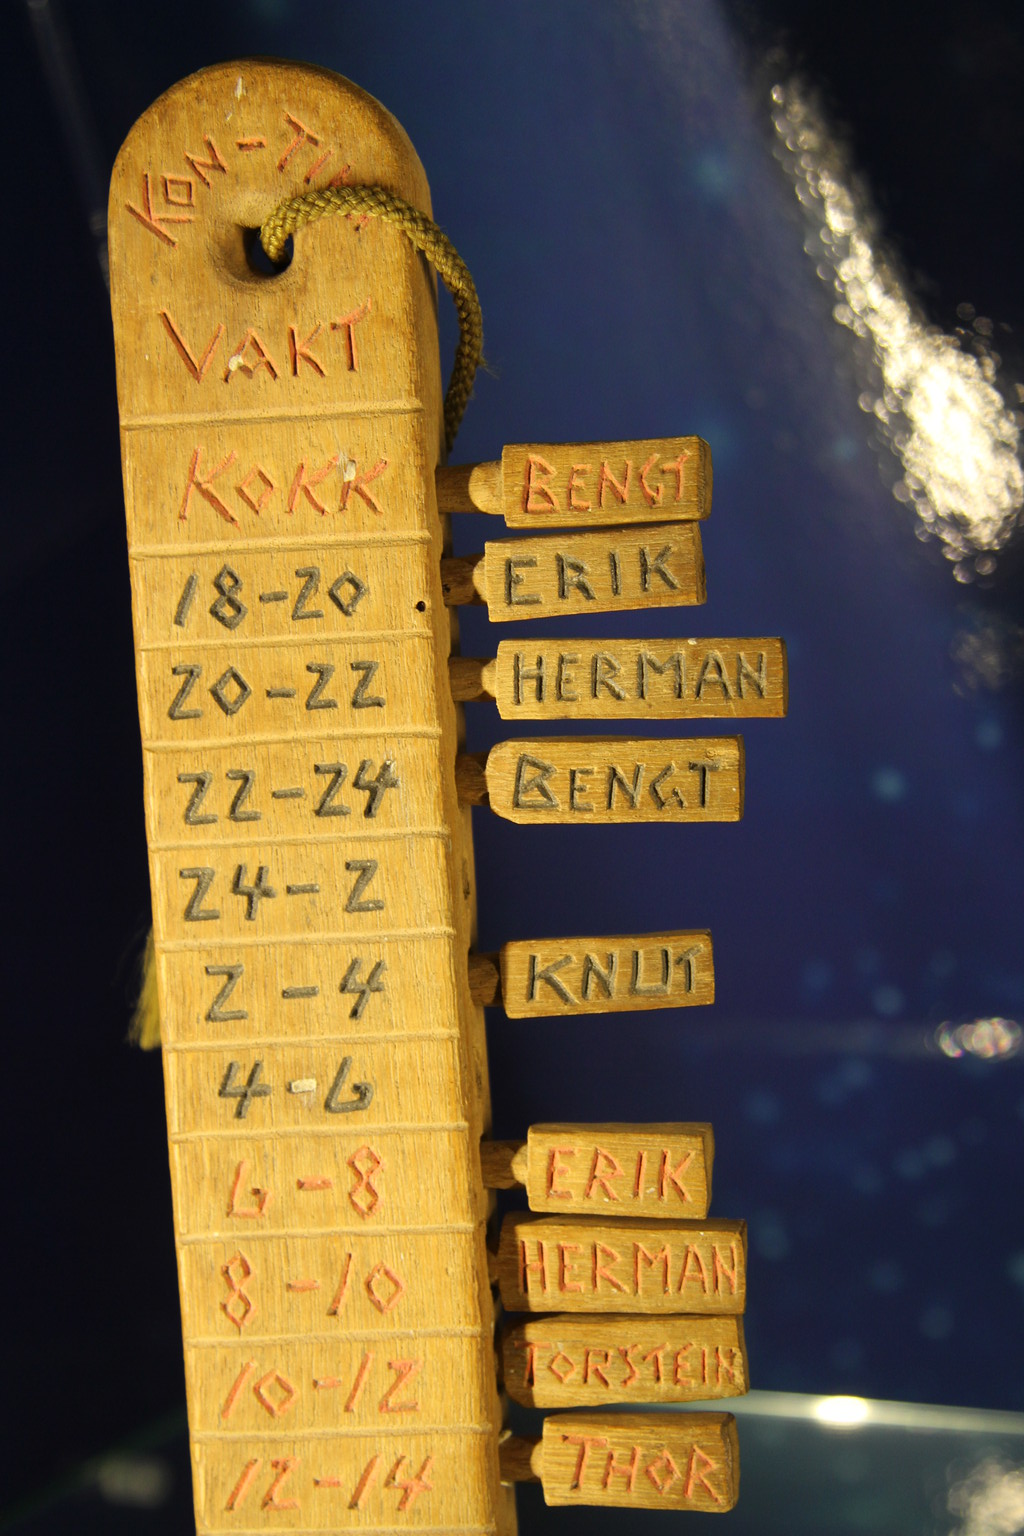 KON-TIKI
VAKT
KOKK BENGT
18-20 ERIK
20-22 HERMAN
22-24 BENGT
24-2
2-4 KNUT
4-6
6-8 ERIK
8-10 HERMAN
10-12 TORSTEIN
12-14 THOR